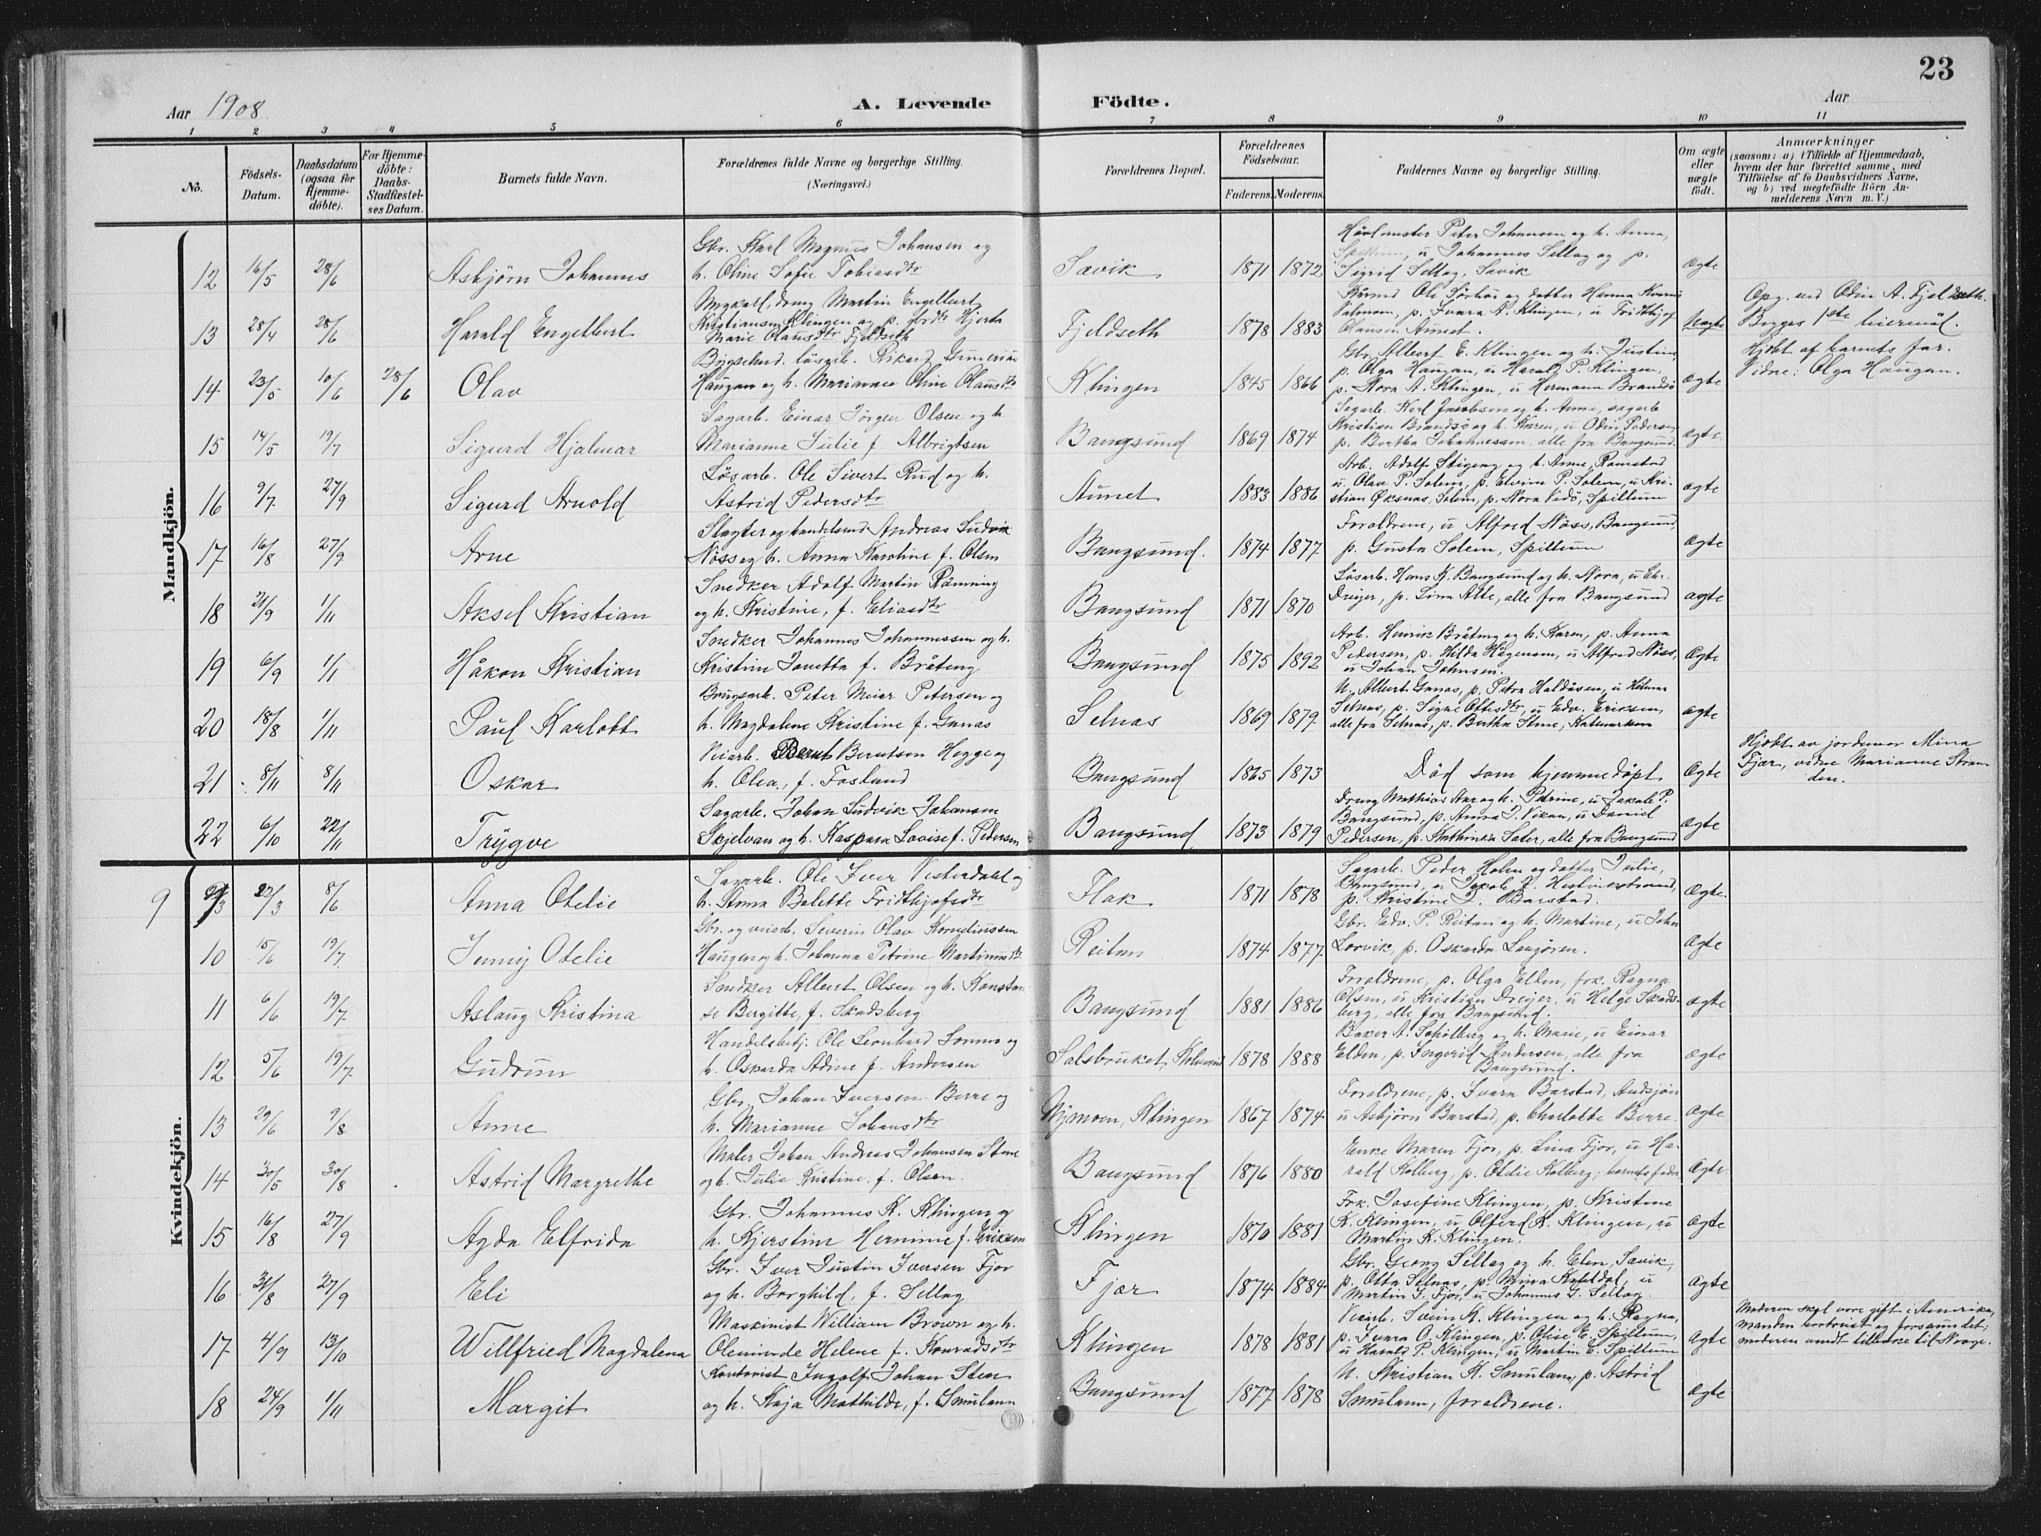 23
Aar 1908
A. Levende Födte.
Aar
1 2 3 4 5 6 7 8 9 10 11
No.
Födsels-Datum.
Daabsdatum (ogsaa for Hjemme-döbte).
For Hjemme-döbte: Daabs-Stadfæstel-ses Datum.
Barnets fulde Navn.
Forældrenes fulde Navne og borgerlige Stilling. (Næringsvei.)
Forældrenes Bopæl.
Forældrenes Födselsaar.
Faderens. Moderens.
Faddernes Navne og borgerlige Stilling.
Om ægte eller uægte födt.
Anmærkninger
(saasom: a) i Tilfælde af Hjemmedaab, hvem der har forrettet samme, med Tilföielse af to Daabsvidners Navne, og b) ved uegtefödte Börn An-melderens Navn m. V.)
Mandkjön.
12 16/5 28/6 Asbjörn Johannes
Gbr. Karl Magnus Johansen og
h. Oline Sofie Tobiasdtr
Savik 1871 1872
Peter Johansen og h. Anna,
Spillum, u Johannes Sellæg og p.
Sigrid Sellæg, Savik
ægte
13 28/4 28/6 Harald Engelbert
Ungkarl, dreng Martin Engelbert
Kristiansen Klingen og p. Hjerta
Marie Olausdtr Fjeldseth
Fjeldseth 1878 1883
Ole Sörhöi og datter Hanna
p. Ivara A. Klingen, u Fridthjof
Olausen Aunet.
uægte
Opg. ved Odin A. Fjeldseth.
Begges 1ste leiermål.
14 23/5 10/6 28/6 Olav
Rikard
Haugan og h. Marianne Oline Olausdtr
Klingen 1845 1866
Gbr. Albert E. Klingen og h. Justine
p. Olga Haugan, u Harald P. Klingen,
p. Nora A. Klingen, u Hermann Brandsö
ægte
Hjdbt af barnets far.
Vidne: Olga Haugan.
15 14/5 19/7 Sigurd Hjalmar
Sagarb. Einar Jörgen Olsen og h.
Marianne Julie f. Albrigtsen
Bangsund 1869 1874
Sagarb. Karl Jacobsen og h. Anne, sagarb
Kristian Brandsö og h. Karen, u Odin Pedersen,
p. Bertha Johannessen, alle fra Bangsund.
ægte
16 9/7 27/9 Sigurd Arnold
Lösarb. Ole Sivert Rud og h.
Astrid Pedersdtr
Aunet 1883 1886
Arb. Adolf Stigeng og h. Anne, Ramstad
u. Olav P. Solem, p. Elvine P. Solem, u. Kri-
stian Öksnes, Solem, p. Nora Vedö, Spillum
ægte
17 16/8 27/9 Arne
Slagter og handelsmd Andreas Ludvik
Næss og h. Anna Karoline f. Olsen
Bangsund. 1874 1877
Forældrene, u Alfred Næss, Bangsund,
p. Gusta Solem, Spillum
ægte
18 21/9 1/11 Aksel Kristian
Snedker Adolf Martin Rönning
og h. Kristine, f. Eliasdtr
Bangsund 1871 1870
Lösarb. Hans K. Bangsund og h. Nora, u Chr.
Dreijer, p. Lina Alte, alle fra Bangsund
ægte
19 6/9 1/1 Håkon Kristian
Snedker Johannes Johannessen og h.
Kristine Janetta f. Bråteng
Bangsund 1875 1892
Arb. Henrik Bråteng og h. Karen, p. Anna
Pedersen, p. Hilda Hagensen, u Alfred Næss,
u Johan Johnsen.
ægte
20 18/8 1/11 Paul Karlott
Brugsarb. Peter Meier Petersen og
h. Magdalene Kristine f. Granås
Selnæs 1869 1879
U. Albert Granås, p. Petra Haldåsen, u Helmer
Selnæs, p. Signe Ottesdtr, u Edv. Eriksen,
alle fra Selnæs, p. Bertha Stene,
ægte
21 8/11 8/11 Oskar
Veiarb. Bernt Berntsen Hegge og
h. Olea, f. Fosland
Bangsund 1865 1873
Död som hjemmedöpt
ægte
Hjdbt av jordmor Mina
Fjær, vidne Marianne Stran-
den.
22 6/10 22/11 Trygve
Sagarb. Johan Ludvik Johansen
Skjelvan og h. Kaspara Lovise f. Pedersen
Bangsund 1873 1879
Dreng Mathias Aar og h. Petrine, u Jakob P.
Bangsund, p. Anna J. Vikan, u Daniel
Pedersen, p. Kathinka Sæter, alle fra Bangsund
ægte
Kvindekjön.
9 27/3 8/6 Anna Otelie
Sagarb. Ole Iver Vesterdahl og
h. Anna Balette Fridthjofsdtr
Flak 1871 1878
Sagarb. Peder Holm og datter Julie,
Bangsund, u Jakob J.
p. Kristine J. Barstad.
ægte
10 15/6 19/7 Jenny Otelie
Gbr. og veiarb. Severin Olav Kornelinssen
Haugen og h. Johanna Petrine Martinusdtr
Reitan 1874 1877
Gbr. Edv. P. Reitan og h. Martine, u John
Lorvik, p. Oskarda
ægte
11 6/6 19/7 Aslaug Kristina
Snedker Albert Olsen og h. Konstan-
se Bergitte, f. Skadsberg
Bangsund 1881 1886
Forældrene, p. Olga Elden, frk. Ragna
Olsen, u Kristian Dreijer, u Helge Skads-
berg, alle fra Bangsund.
ægte
12 5/6 19/7 Gudrun
Handelsbetj. Ole Leonhard Lornes og
h. Oskarda Adine f. Andersen
Salsbruket, Kolvereid 1878 1888
Baker A. Sapölberg og h. Marie, u Einar
Elden, p. Ingerid Andersen, alle fra
Bangsund.
ægte
13 29/6 9/8 Anne
Gbr. Johan Iversen Berre og
h. Marianne Johansdtr
Nymoen, Klingen 1867 1874
Forældrene, p. Ivara Barstad, Audsjön
u Asbjörn Barstad, p. Charlotte Berre.
ægte
14 30/5 30/8 Astrid Margrethe
Maler Johan Andreas Johansen Stene
og h. Julie Kristine, f. Olsen.
Bangsund 1876 1880
Enke Maren Fjær, p. Lina Fjær, u Ha-
rald Kolberg, p. Otelie Kolberg, barnets fader
ægte
15 16/8 27/9 Agda Elfrida
Gbr. Johannes K. Klingen og
h. Kjerstine Hermine f. Eriksen
Klingen 1870 1881
Frk. Josefine Klingen, p. Kristine
K. Klingen, u Olferd K. Klingen, u
Martin K. Klingen.
ægte
16 31/8 27/9 Eli
Gbr. Iver Justin Iversen Fjær
og h. Borghild, f. Sellæg
Fjær 1874 1884
Gbr. Georg Sellæg og h. Elen, Savik,
p. Otta Selnæs, p. Mina Kaldal, u
Martin G. Fjær, u Johannes G. Sellæg.
ægte
17 4/9 13/10 Willfried Magdalena
Maskinist William Brown og h.
Oleninde Helene f. Konradsdtr
Klingen 1878 1881
Veiarb. Svein K. Klingen og h. Ragna,
p. Ivara O. Klingen, p. Olise E. Spillum,
u Harald P. Klingen, u Martin E. Spillum
ægte
Moderen skal være gift i Amerika,
manden bortreist og forsvundet;
moderen vendt tilbake til Norge.
18 24/9 1/11 Margit
Kontorist Ingolf Johan Sten
og h. Kaja Mathilde, f. Smulann
Bangsund 1877 1878
U. Kristian H. Smulann, p. Astrid
Smulann, forældrene.
ægte